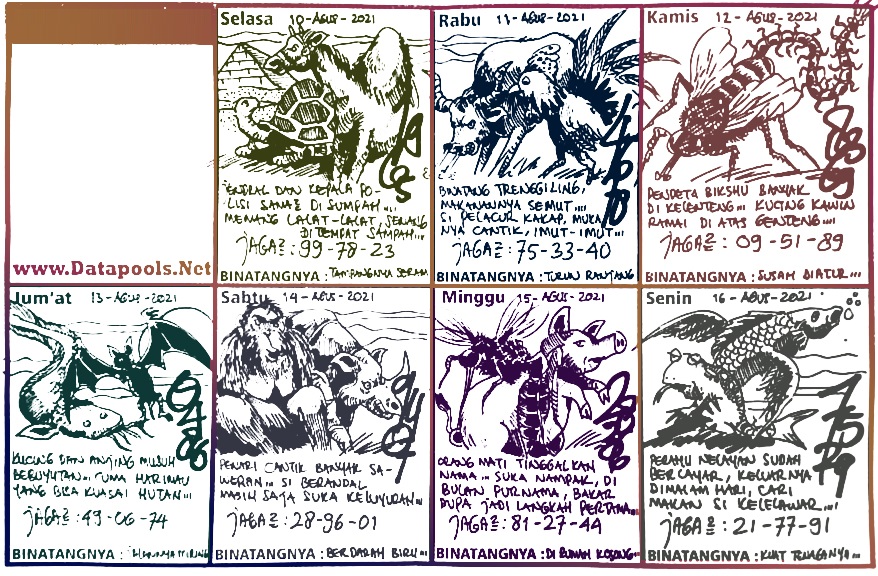 www.Datapools.Net
Selasa 10-AGUS-2021
JENDRAL DAN KEPALA PO-
LISI SANA2 DI SUMPAH....
MEMANG LALAT-LALAT, SENANG
DI TEMPAT SAMPAH...
JAGA2 : 99-78-23
BINATANGNYA : TAMPANGNYA SERAM
Rabu 11-AGUS-2021
BINATANG TRENEGILING,
MAKANANNYA SEMUT....
SI PELACUR KAKAP, MUKA
NYA CANTIK, IMUT-IMUT...
JAGA2 : 75-33-40
BINATANGNYA : TURUN RANJANG
Kamis 12-AGUS-2021
PENDETA BIKSHU BANYAK
DI KELENTENG... KUCING KAWIN
RAMAI DI ATAS GENTENG...
JAGA2 : 09-51-89
BINATANGNYA : SUSAH DIATUR...
Jum'at 13-AGUS-2021
KUCING DAN ANJING MUSUH
BEBUYUTAN... CUMA HARIMAU
YANG BISA KUASAI HUTAN...
JAGA2 : 49-06-74
BINATANGNYA :
Sabtu 14-AGUS-2021
PENARI CANTIK BANYAK SA-
WERAN... SI BERANDAL
MASIH SAJA SUKA KELUYURAN...
JAGA2 : 28-96-01
BINATANGNYA : BERDARAH BIRU...
Minggu 15-AGUS-2021
ORANG MATI TINGGALKAN
NAMA... SUKA NAMPAK, DI
BULAN PURNAMA, BAKAR
DUPA JADI LANGKAH PERTAMA...
JAGA2 : 81-27-44
BINATANGNYA : DI RUMAH KOSONG...
Senin 16-AGUS-2021
PERAHU NELAYAN SUDAH
BERLAYAR, KELUARNYA
DIMALAM HARI, CARI
MAKAN SI KELELAWAR...
JAGA2 : 21-77-91
BINATANGNYA : KUAT TENAGANYA...